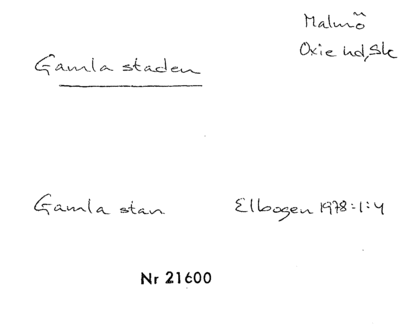 Malmö
Oxie hd, Sk
Gamla staden
Gamla stan Elbogen 1978:1:4
Nr 21600